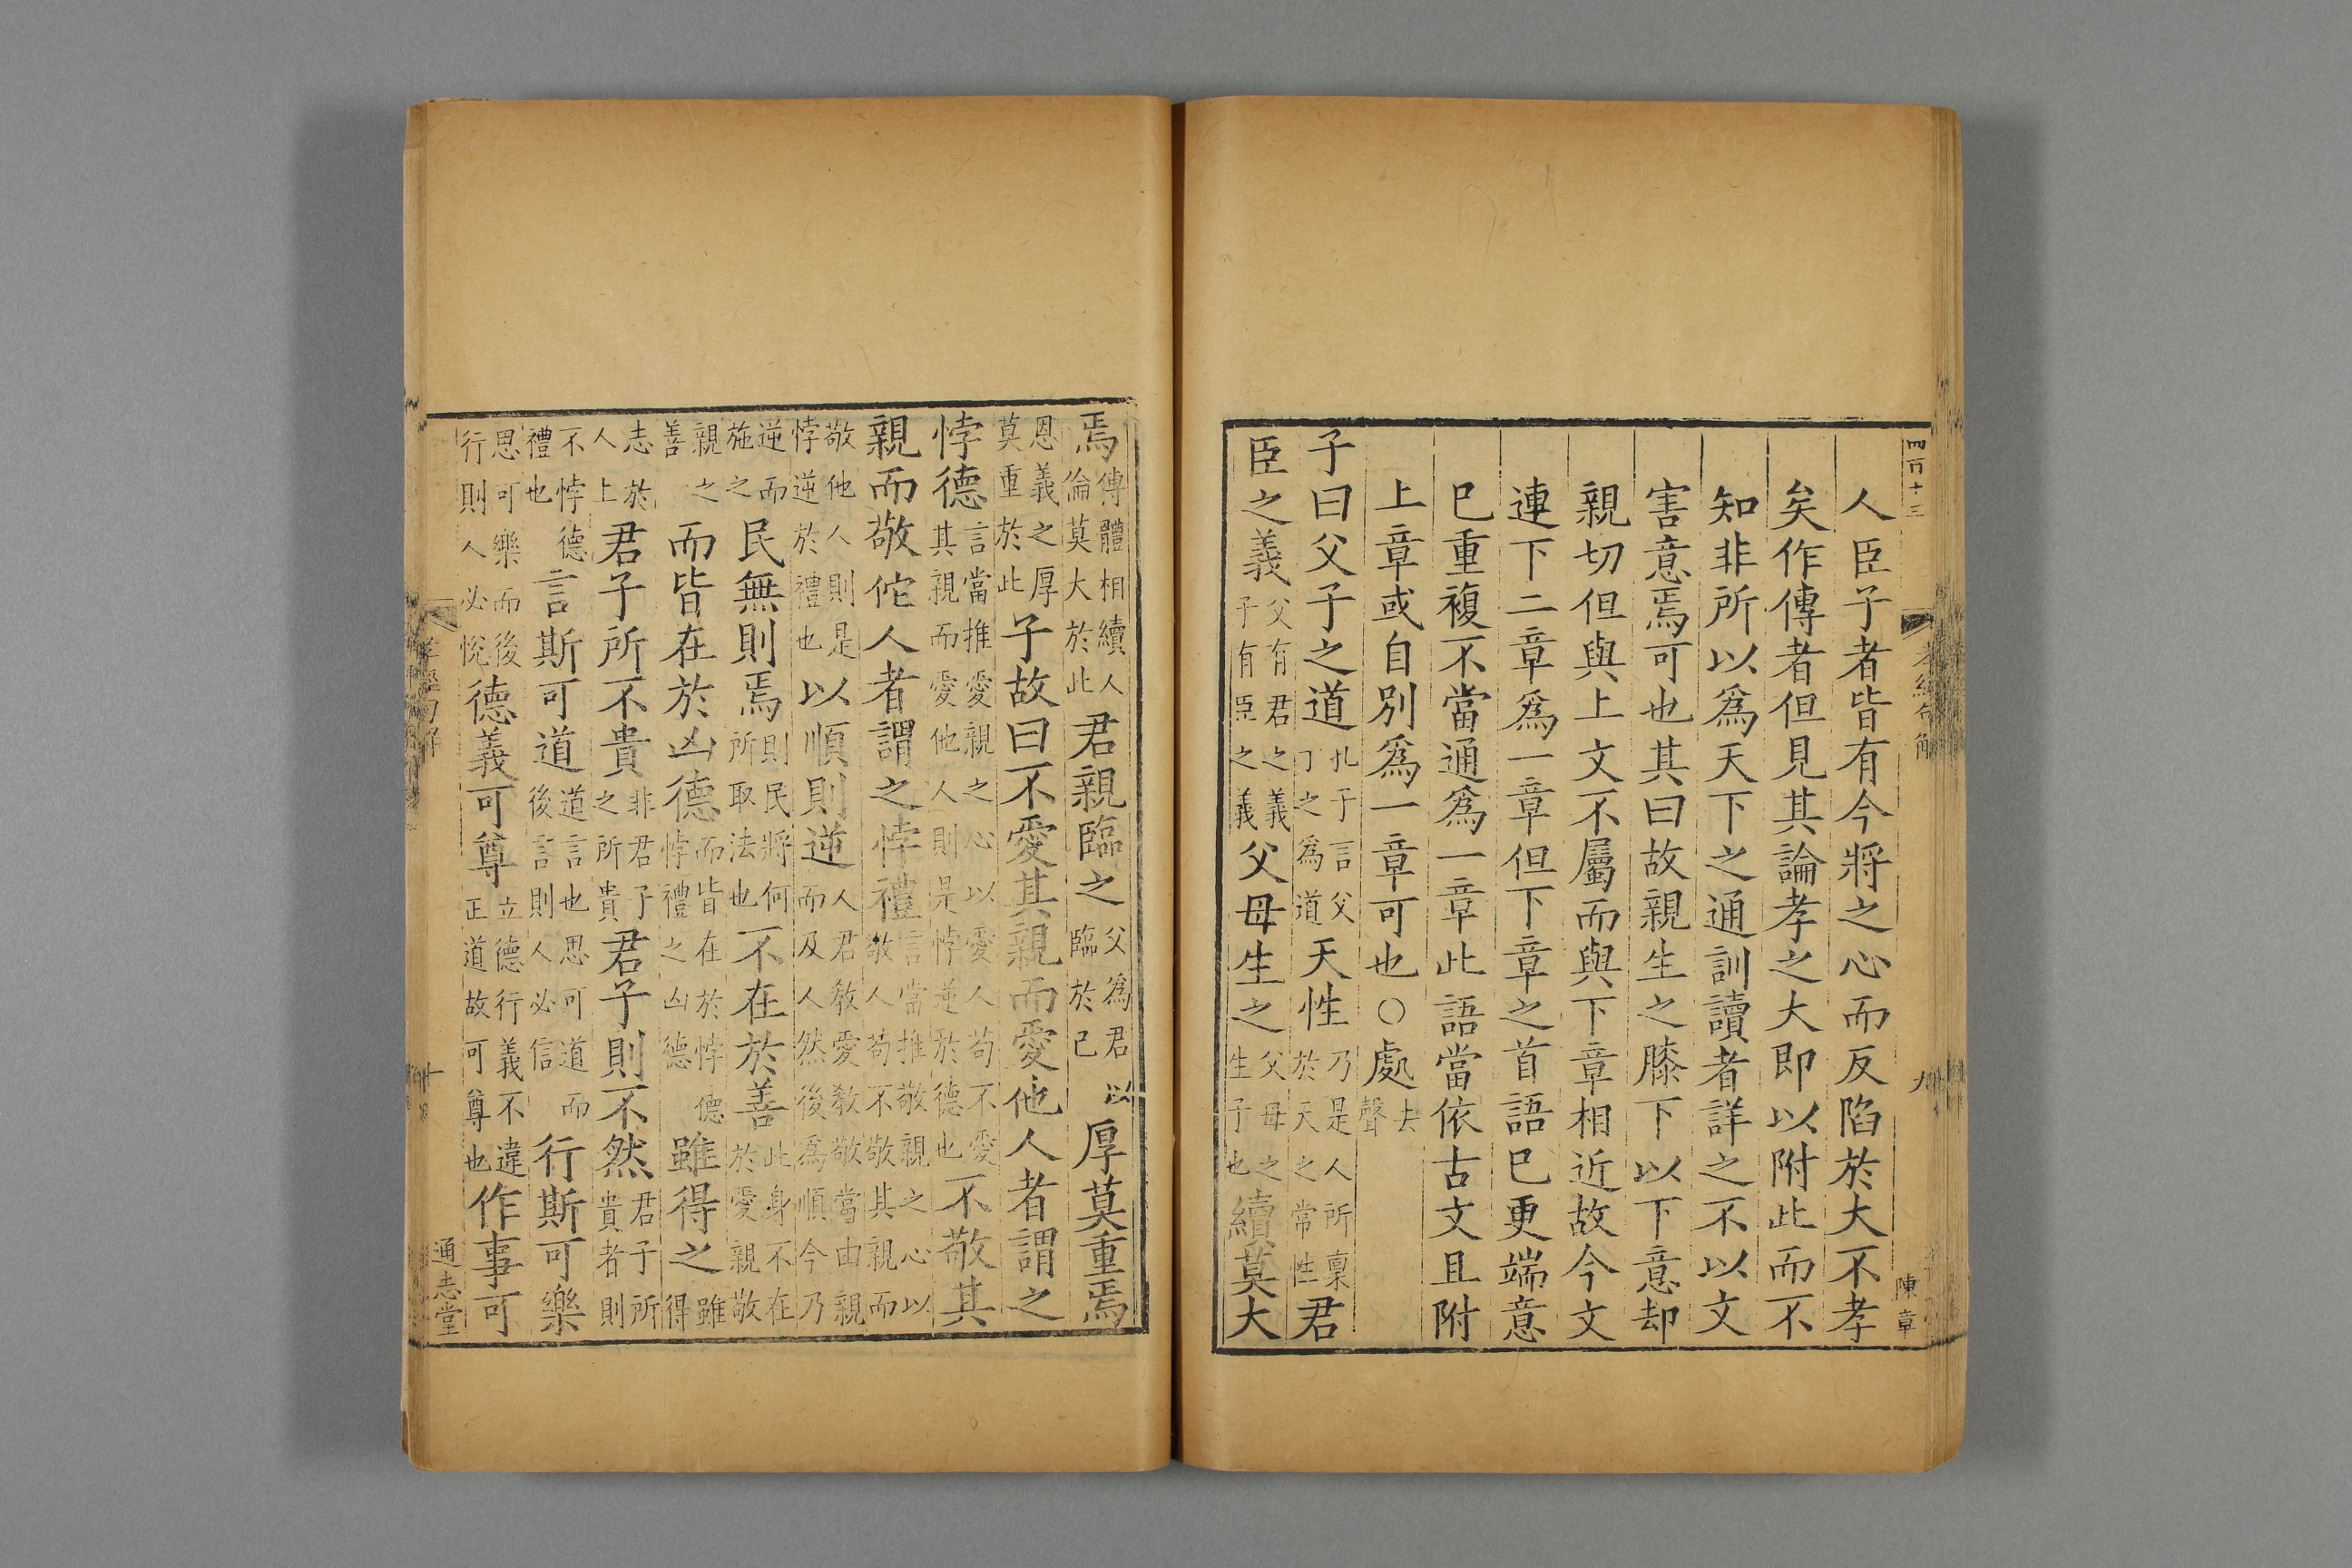 四百十三
孝經句解
九
陳章
人臣子者皆有今將之心而反陷於大不孝
矣作傳者但見其論孝之大即以附此而不
知非所以爲天下之通訓讀者詳之不以文
害意焉可也其曰故親生之膝下以下意却
親切但與上文不屬而與下章相近故今文
連下二章爲一章但下章之首語已更端意
已重複不當通爲一章此語當依古文且附
上章或自別爲一章可也○處去聲
子曰父子之道孔子言父子之爲道天性乃是人所稟於天之常性君
臣之義父有君之義子有臣之義父母生之父母之生子也續莫大
焉傳體相續人倫莫大於此君親臨之父爲君臨於已以厚莫重焉
恩義之厚莫重於此子故曰不愛其親而愛他人者謂之
悖德言當推愛親之心以愛人苟不愛其親而愛他人則是悖逆於德也不敬其
親而敬佗人者謂之悖禮言當推敬親之心以敬人苟不敬其親而
敬他人則是悖逆於禮也以順則逆人君敎愛敎敬當由親而及人然後爲順今乃
逆而施之民無則焉則民將何所取法也不在於善此身不在於愛親敬
親之善而皆在於凶德而皆在於悖德悖禮之凶德雖得之雖得
志於人上君子所不貴非君子之所貴君子則不然君子所貴者則
不悖德禮也言斯可道道言也思可道而後言則人必信行斯可樂
思可樂而後行則人必悅德義可尊立德行義不違正道故可尊也作事可
孝經句解
十
通志堂